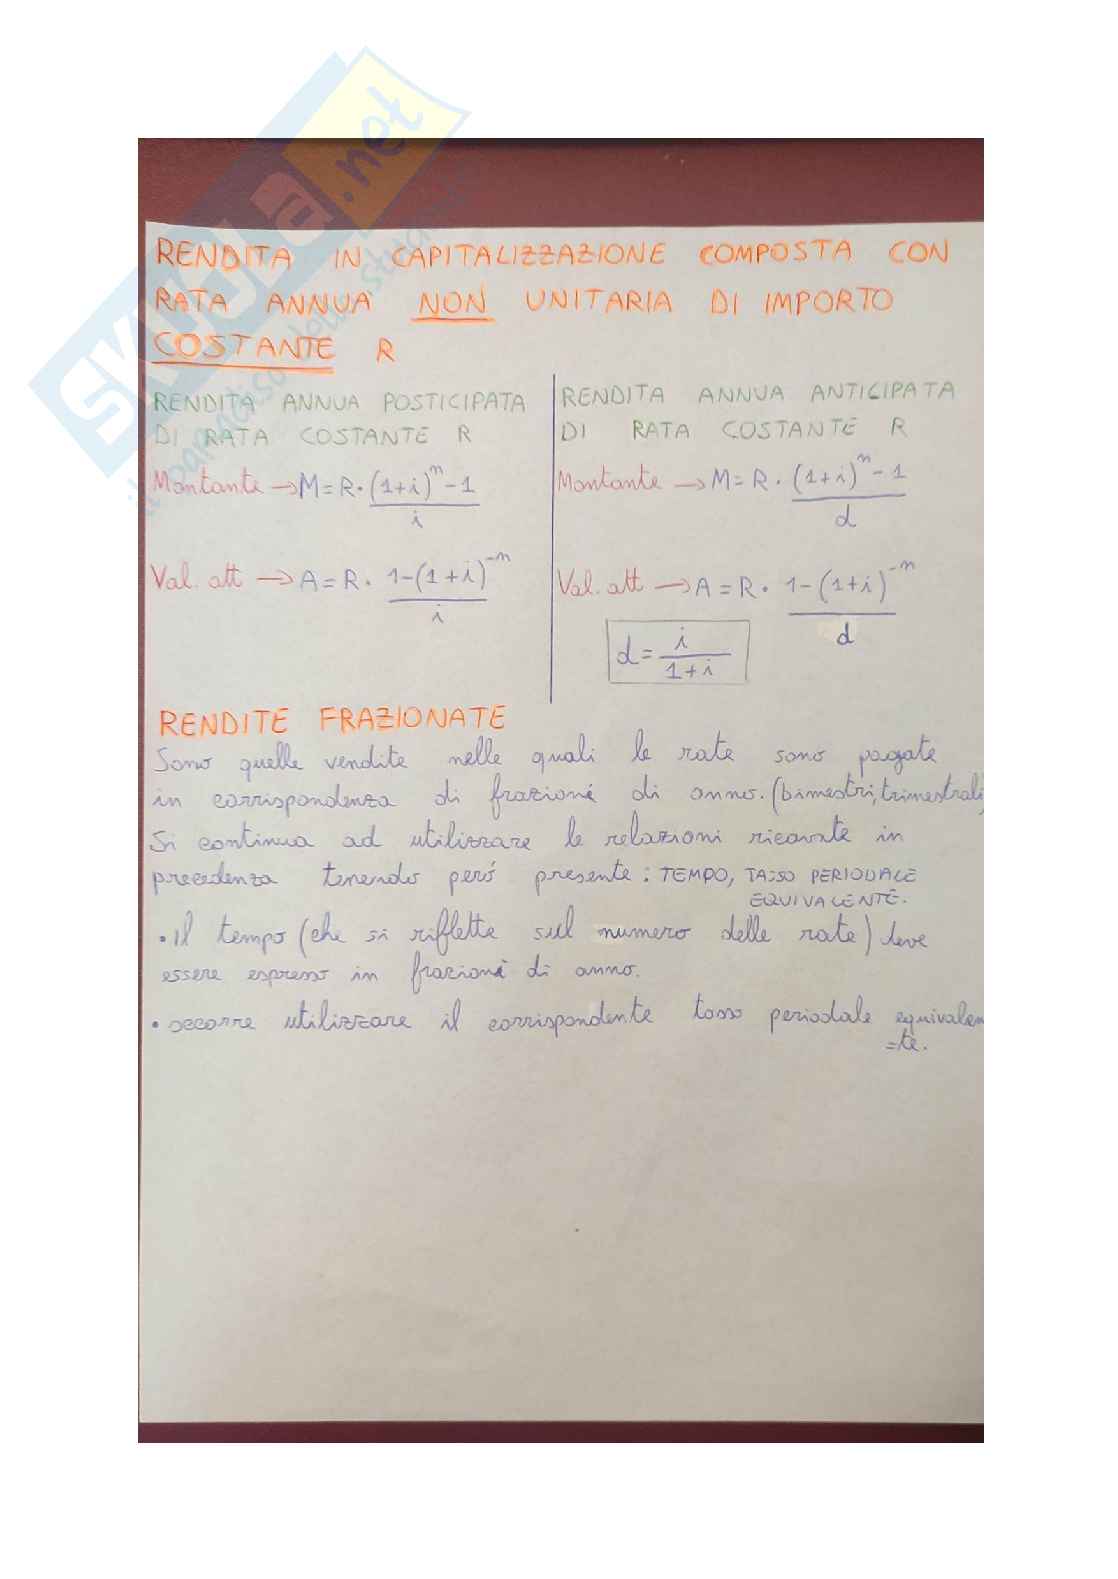 RENDITA IN CAPITALIZZAZIONE COMPOSTA CON
RATA ANNUA NON UNITARIA DI IMPORTO
COSTANTE R
RENDITA ANNUA POSTICIPATA
DI RATA COSTANTE R
Montante → M = R · ((1+i)^n - 1) / i
Val. att → A = R · (1-(1+i)^-n) / i
RENDITA ANNUA ANTICIPATA
DI RATA COSTANTE R
Montante → M = R · ((1+i)^n - 1) / d
Val. att → A = R · (1-(1+i)^-n) / d
d = i / (1+i)
RENDITE FRAZIONATE
Sono quelle vendite nelle quali le rate sono pagate
in corrispondenza di frazioni di anno. (bimestri, trimestrali)
Si continua ad utilizzare le relazioni ricavate in
precedenza tenendo peró presente: TEMPO, TASSO PERIODALE
EQUIVALENTE.
• Il tempo (che si riflette sul numero delle rate) deve
essere espresso in frazioni di anno.
• occorre utilizzare il corrispondente tasso periodale equivalen
=te.
SKUOLA.net
il paradiso dello studente